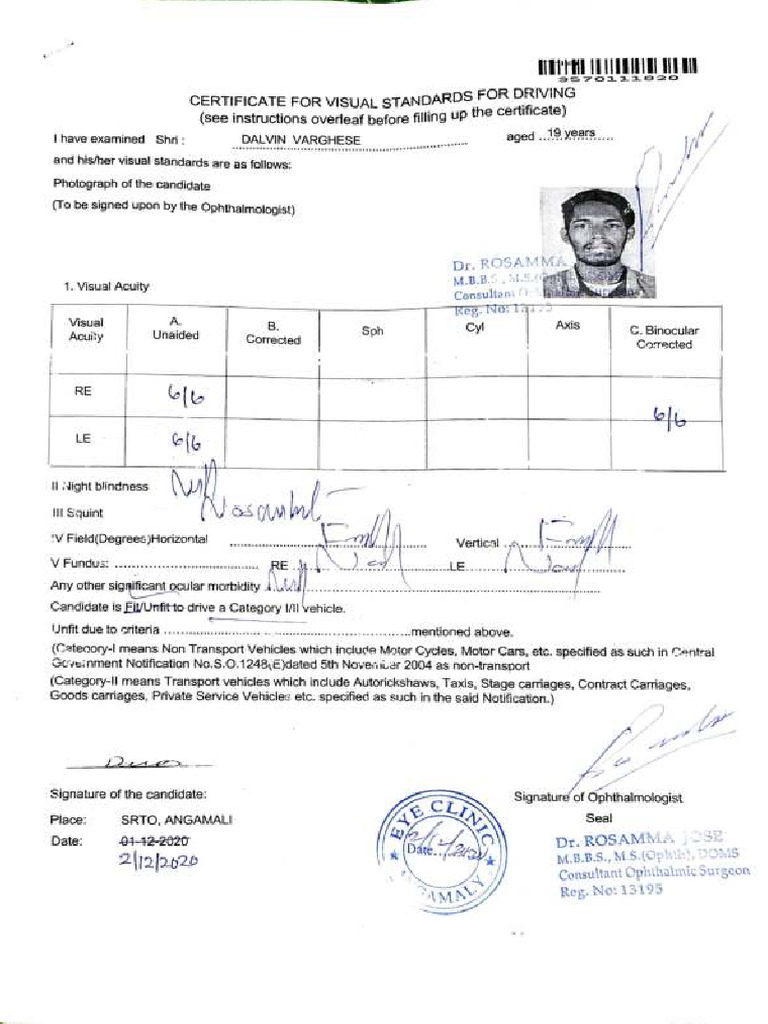 3570111820
CERTIFICATE FOR VISUAL STANDARDS FOR DRIVING
(see instructions overleaf before filling up the certificate)
I have examined Shri : DALVIN VARGHESE aged 19 years
and his/her visual standards are as follows:
Photograph of the candidate
(To be signed upon by the Ophthalmologist)
Dr. ROSAMMA
M.B.B.S., M.S.(Oph
Consultant Ophthalmic Surgeon
Reg. No: 13195
1. Visual Acuity
Visual Acuity A. Unaided B. Corrected Sph Cyl Axis C. Binocular Corrected
RE 6/6
6/6
LE 6/6
II Night blindness
III Squint
IV Field(Degrees)Horizontal Vertical
V Fundus: RE LE
Any other significant ocular morbidity
Candidate is Fit/Unfit to drive a Category I/II vehicle.
Unfit due to criteria mentioned above.
(Category-I means Non Transport Vehicles which include Motor Cycles, Motor Cars, etc. specified as such in Central
Government Notification No.S.O.1248(E)dated 5th November 2004 as non-transport
(Category-II means Transport vehicles which include Autorickshaws, Taxis, Stage carriages, Contract Carriages,
Goods carriages, Private Service Vehicles etc. specified as such in the said Notification.)
Signature of the candidate:
Signature of Ophthalmologist
Seal
Place: SRTO, ANGAMALI
Date: 01-12-2020
2/12/2020
EYE CLINIC
Date
ANGAMALY
Dr. ROSAMMA JOSE
M.B.B.S., M.S.(Ophth), DOMS
Consultant Ophthalmic Surgeon
Reg. No: 13195